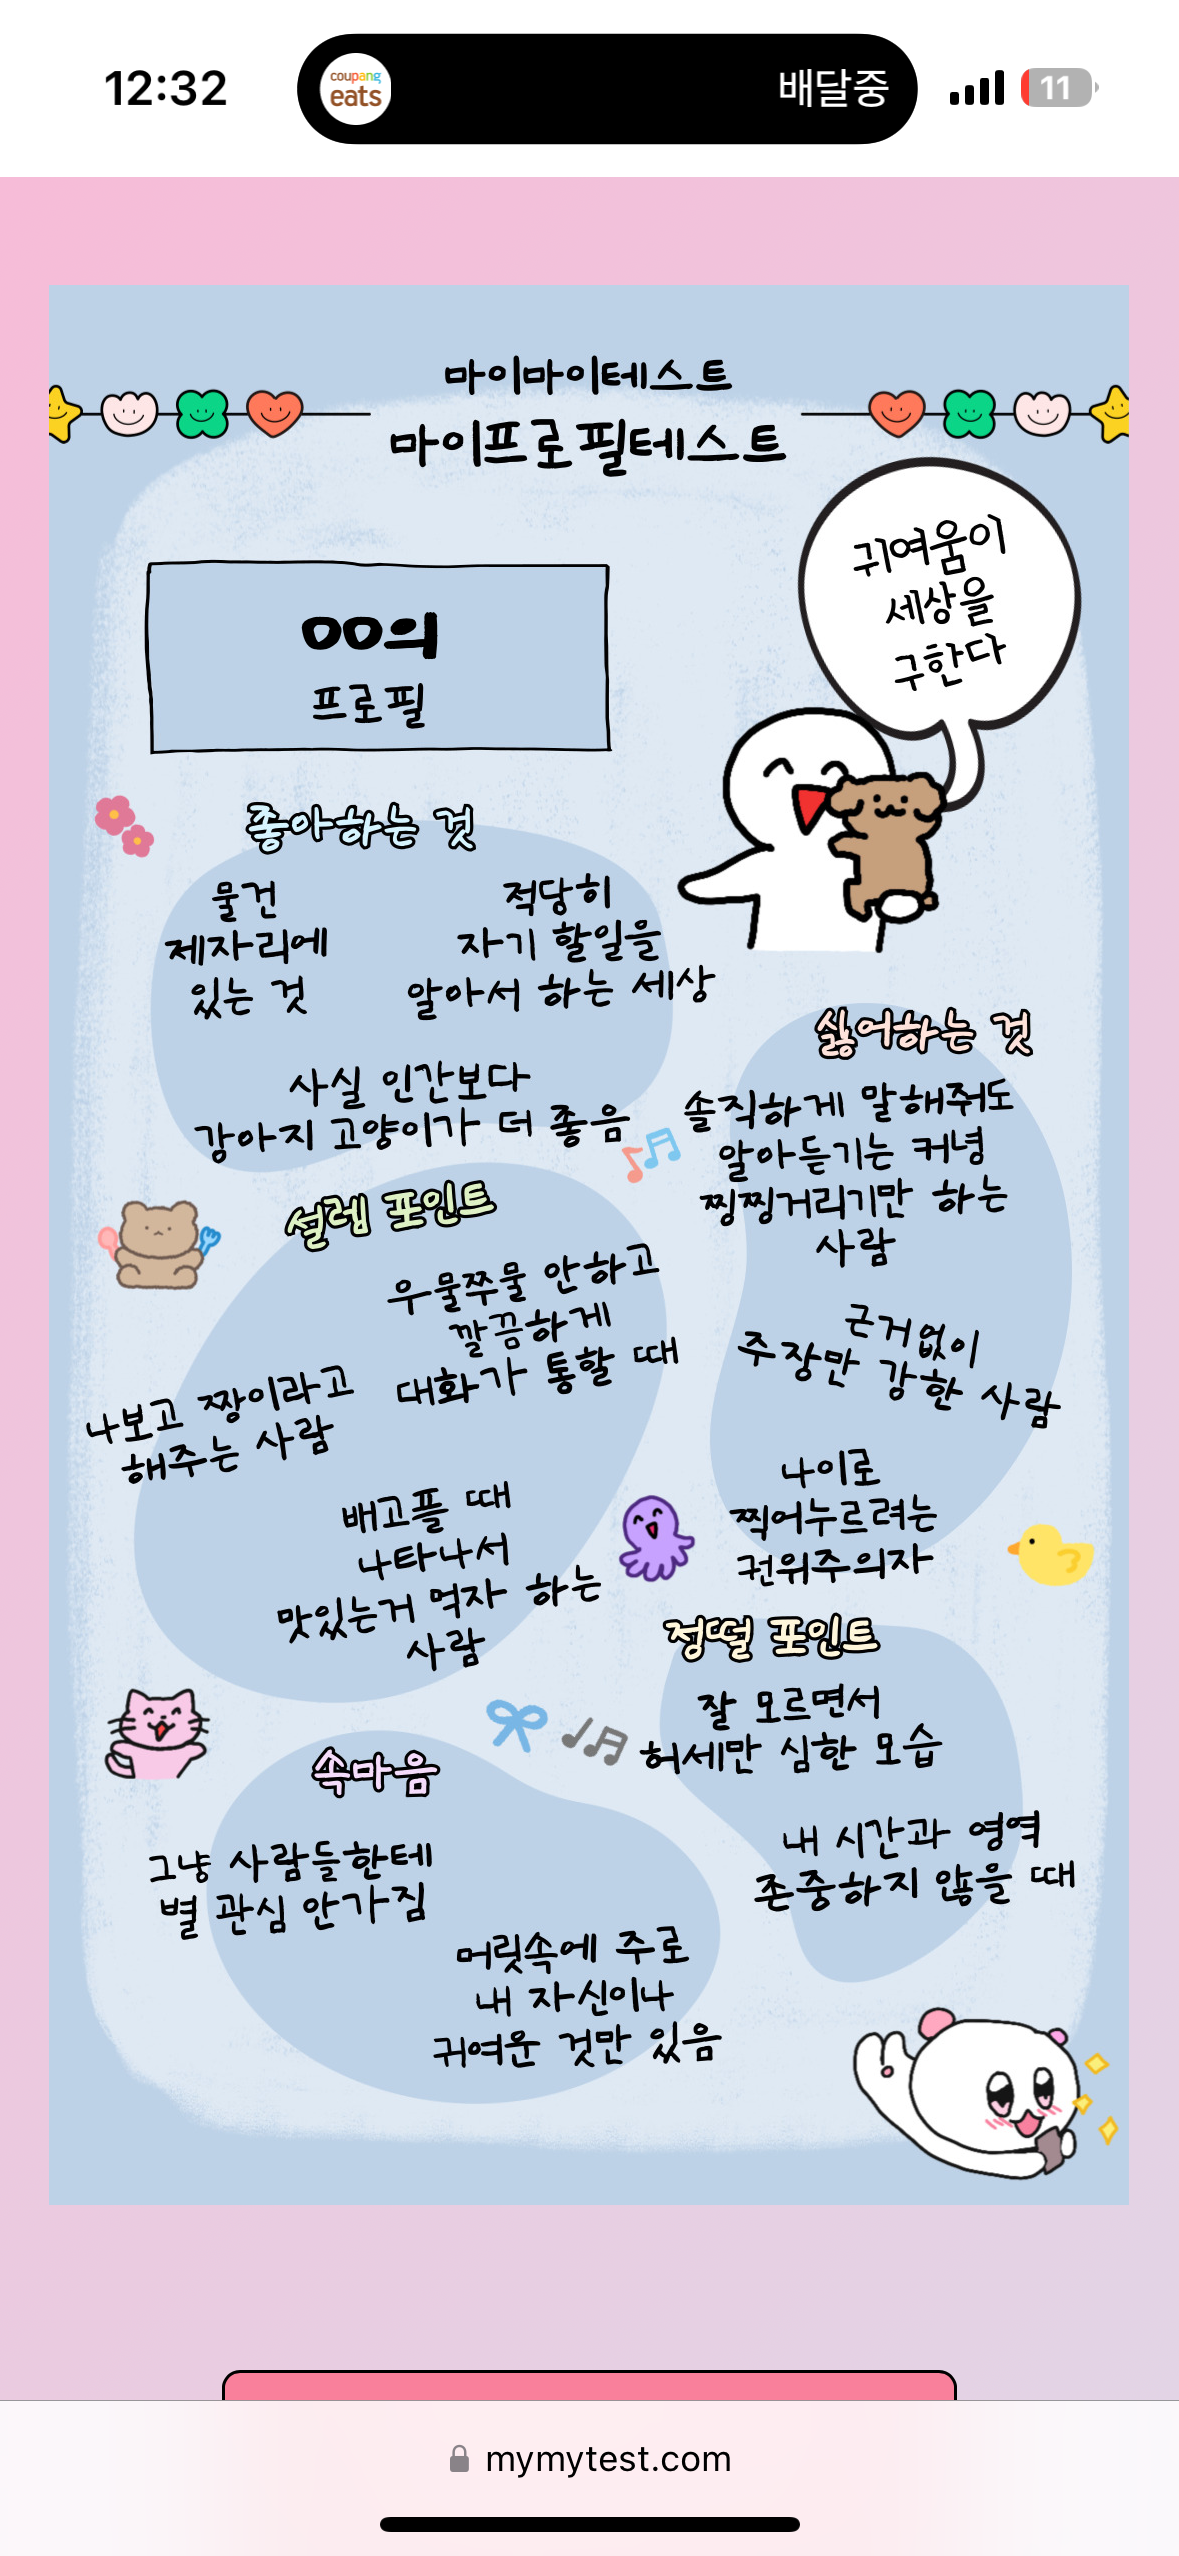 12:32
coupang
eats
배달중
11
마이마이테스트
마이프로필테스트
귀여움이
세상을
구한다
OO의
프로필
좋아하는 것
물건
제자리에
있는 것
적당히
자기 할일을
알아서 하는 세상
사실 인간보다
강아지 고양이가 더 좋음
싫어하는 것
솔직하게 말해줘도
알아듣기는 커녕
찡찡거리기만 하는
사람
근거없이
주장만 강한 사람
나이로
찍어누르려는
권위주의자
설렘 포인트
우물쭈물 안하고
깔끔하게
대화가 통할 때
나보고 짱이라고
해주는 사람
배고플 때
나타나서
맛있는거 먹자 하는
사람
정떨 포인트
잘 모르면서
허세만 심한 모습
내 시간과 영역
존중하지 않을 때
속마음
그냥 사람들한테
별 관심 안가짐
머릿속에 주로
내 자신이나
귀여운 것만 있음
mymytest.com